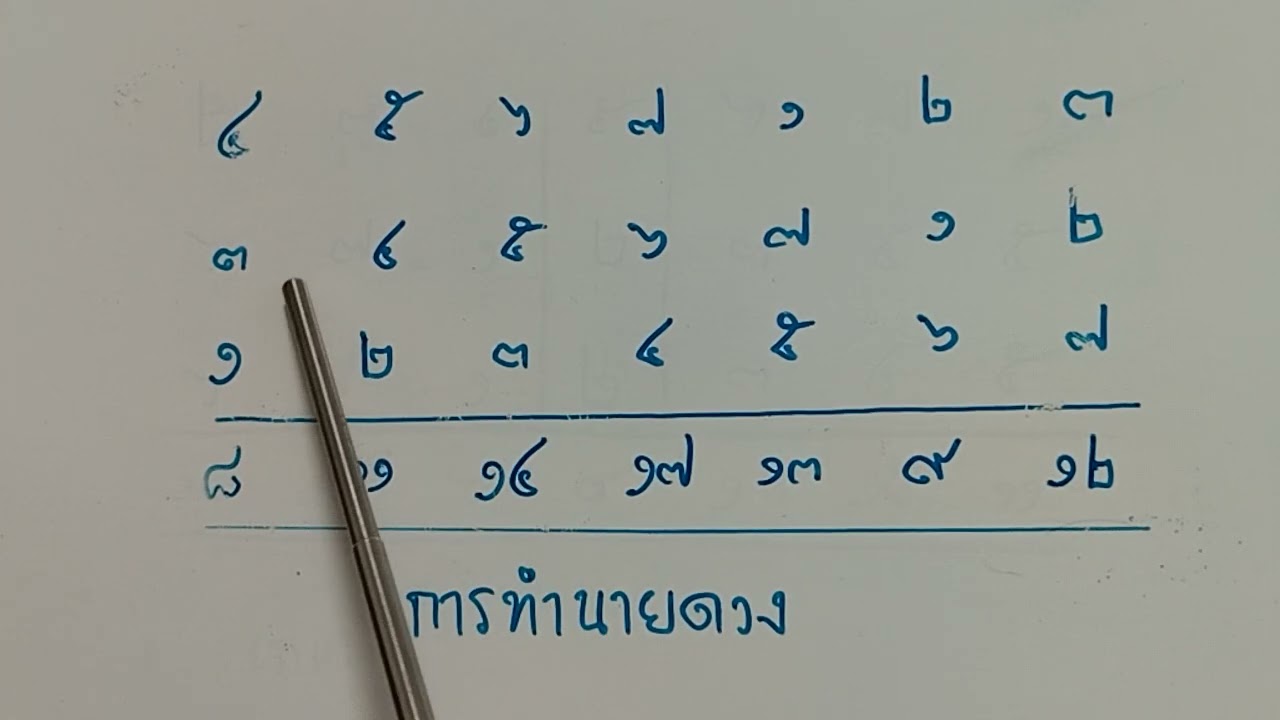 ๔ ๕ ๖ ๗ ๑ ๒ ๓
๓ ๔ ๕ ๖ ๗ ๑ ๒
๑ ๒ ๓ ๔ ๕ ๖ ๗
๘ ๑๑ ๑๔ ๑๗ ๑๓ ๙ ๑๒
การทำนายดวง